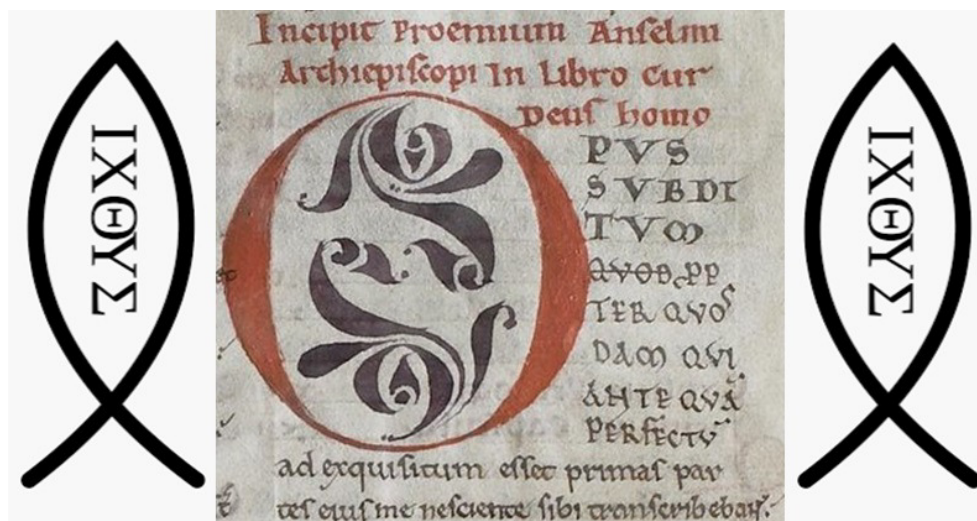 ΙΧΘΥΣ
Incipit Proemium Anselmi
Archiepiscopi In Libro Cur
Deus homo
OPVS
SVBDI
TVM
QVOD PP
TER QVOS
DAM QVI
ANTE QVA
PERFECTV
ad exquisitum esset primas par
tes eius me nesciente sibi transcribebant.
ΙΧΘΥΣ